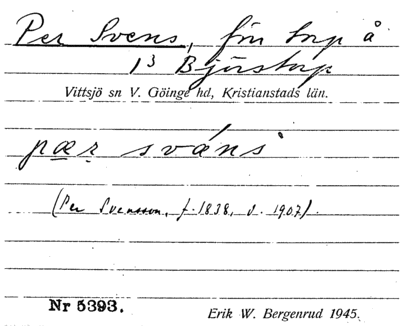 Per Svens, för torp å
1³ Bjärstorp
Vittsjö sn V. Göinge hd, Kristianstads län.
pæ̱r svá̱ns
(Per Svensson, f. 1838, d. 1907).
Nr 5393.
Erik W. Bergenrud 1945.